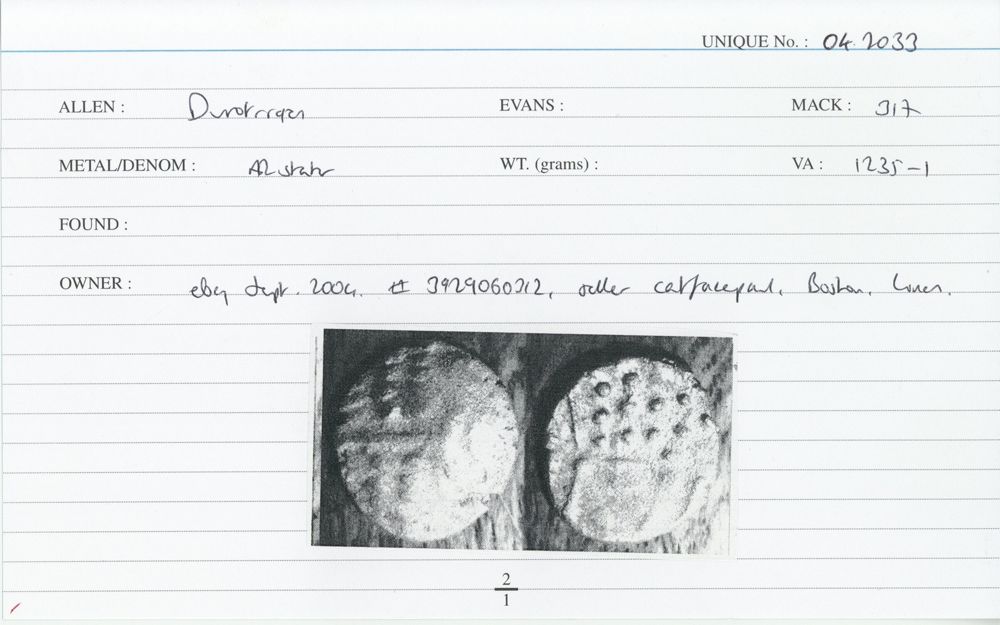 UNIQUE No. : 04.2033
ALLEN : Durotrigan EVANS : MACK : 317
METAL/DENOM : AR stater WT. (grams) : VA : 1235-1
FOUND :
OWNER : ebay Sept. 2004. # 3929060312, seller catfacepaul, Boston, Lincs.
2
1